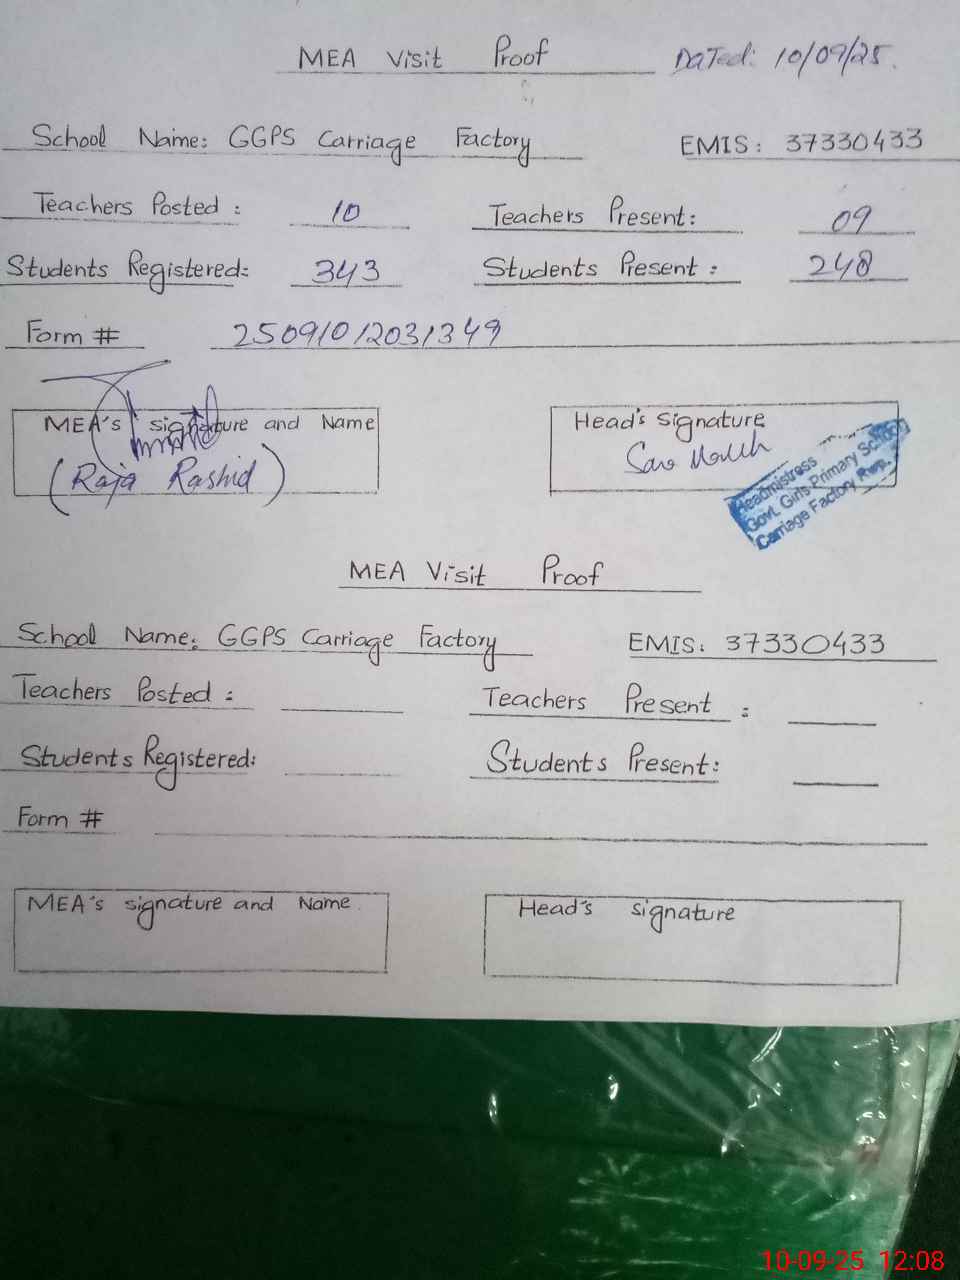 MEA Visit Proof Dated: 10/09/25.
School Name: GGPS Carriage Factory EMIS: 37330433
Teachers Posted: 10 Teachers Present: 09
Students Registered: 343 Students Present: 248
Form # 25091012031349
MEA's signature and Name Head's signature
(Raja Rashid)
Headmistress
Govt. Girls Primary School
Carriage Factory Rwp.
MEA Visit Proof
School Name: GGPS Carriage Factory EMIS: 37330433
Teachers Posted: Teachers Present:
Students Registered: Students Present:
Form #
MEA's signature and Name Head's signature
10-09-25 12:08